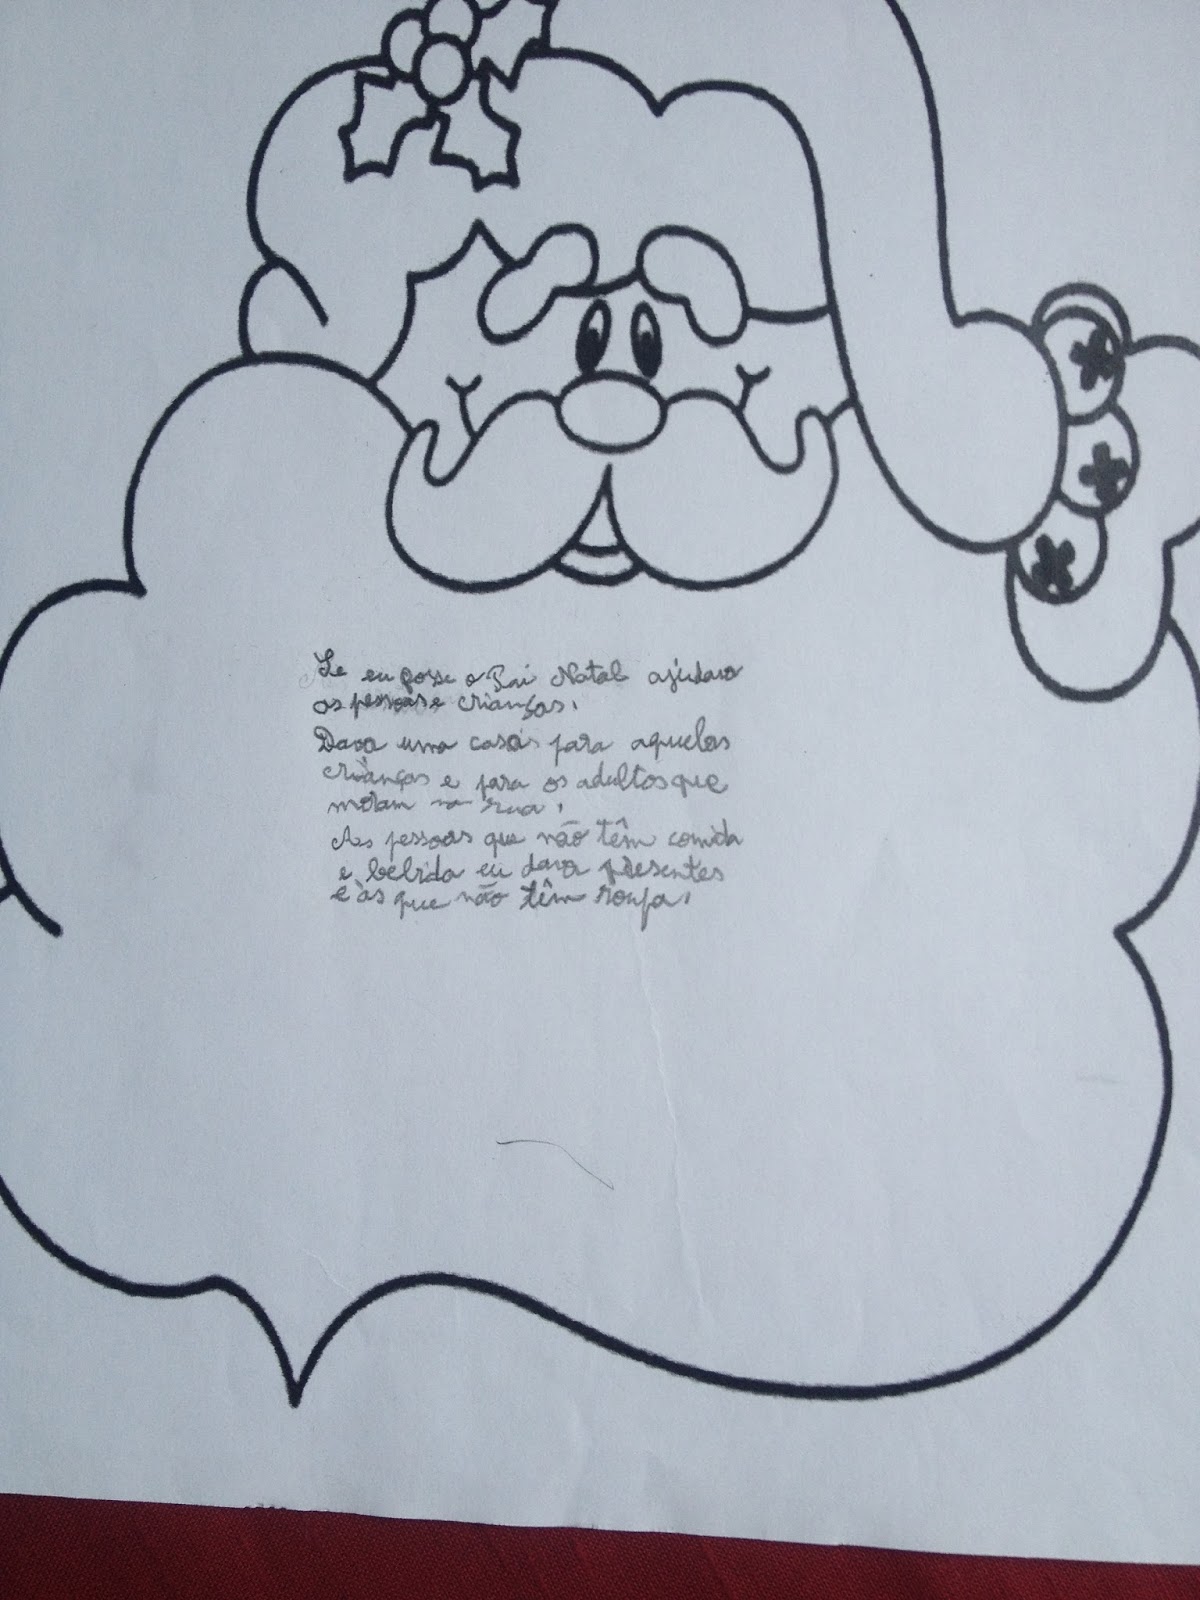 Se eu fosse o Pai Natal ajudava
as pessoas e crianças.
Dava uma casa para aquelas
crianças e para os adultos que
moram na rua.
As pessoas que não têm comida
e bebida eu dava presentes
e às que não têm roupa.